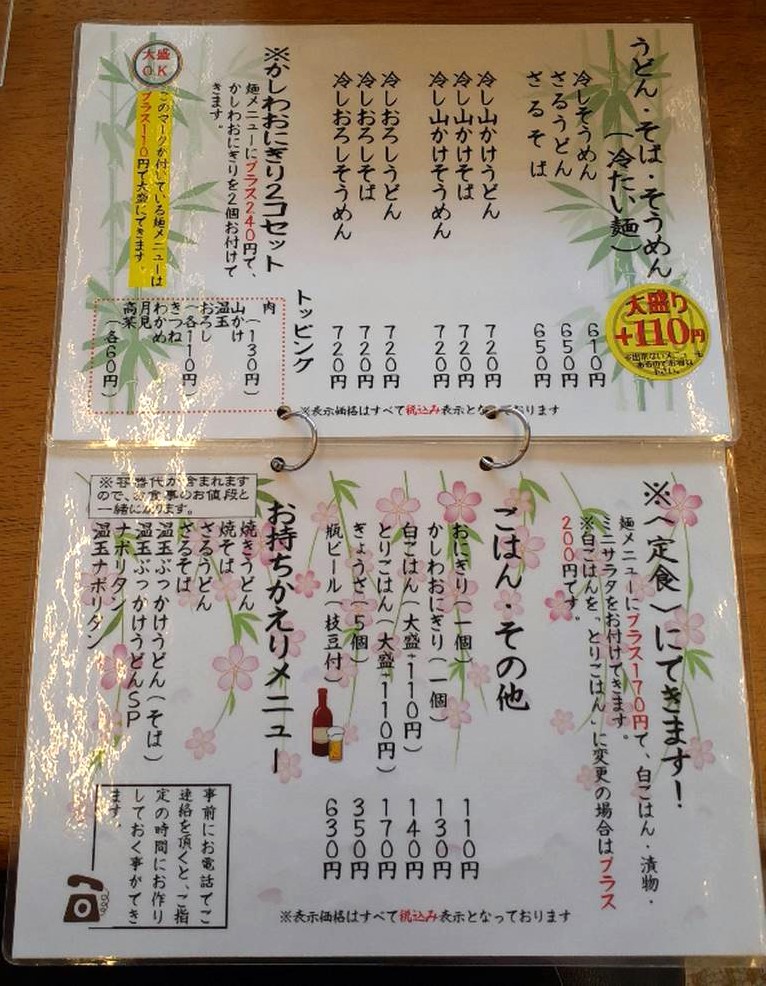 うどん・そば・そうめん
(冷たい麺)
大盛り
+110円
冷しそうめん 610円
ざるうどん 650円
ざるそば 650円
冷し山かけうどん 720円
冷し山かけそば 720円
冷し山かけそうめん 720円
冷しおろしうどん 720円
冷しおろしそば 720円
冷しおろしそうめん 720円
※かしわおにぎり2コセット
麺メニューにプラス240円で、
かしわおにぎりを2個お付けで
きます。
大盛
O.K
このマークが付いている麺メニューは
プラス110円で大盛にできます。
トッピング
肉(130円)
山かけ
温玉
おろし
(各110円)
きつね
わかめ
月見
高菜
(各60円)
※表示価格はすべて税込み表示となっております
※〈定食〉にできます!
麺メニューにプラス170円で、白ごはん・漬物・
ミニサラダをお付けできます。
※白ごはんを「とりごはん」に変更の場合はプラス
200円です。
ごはん・その他
おにぎり(一個) 110円
かしわおにぎり(一個) 130円
白ごはん(大盛+110円) 140円
とりごはん(大盛+110円) 170円
ぎょうざ(5個) 350円
瓶ビール(枝豆付) 630円
お持ちかえりメニュー
※容器代が含まれます
ので、お食事のお値段と
一緒になります。
焼きうどん
焼そば
ざるうどん
ざるそば
温玉ぶっかけうどん(そば)
温玉ぶっかけうどんSP
ナポリタン
温玉ナポリタン
事前にお電話でご
連絡を頂くと、ご指
定の時間にお作り
しておく事ができ
ます。
※表示価格はすべて税込み表示となっております